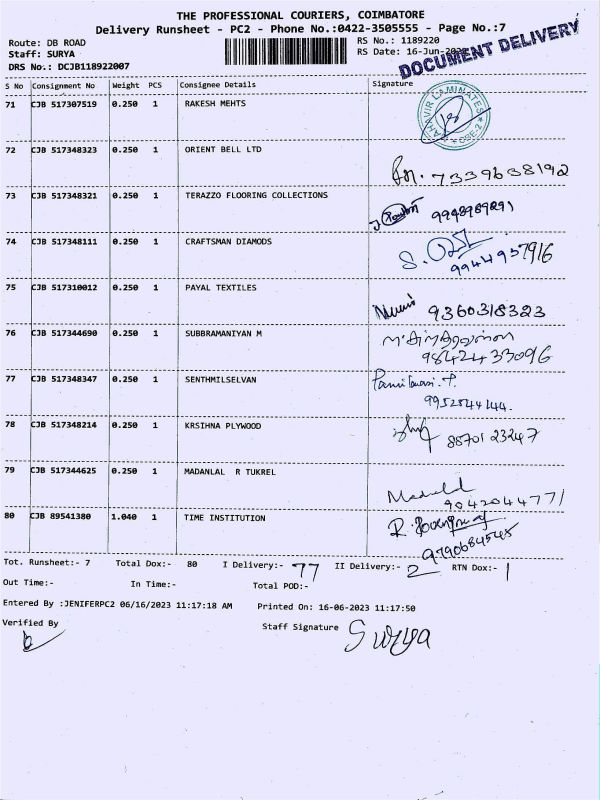 THE PROFESSIONAL COURIERS, COIMBATORE
Delivery Runsheet - PC2 - Phone No.:0422-3505555 - Page No.:7
Route: DB ROAD RS No.: 1189220
Staff: SURYA RS Date: 16-Jun-2023
DRS No.: DCJB118922007 DOCUMENT DELIVERY
S No Consignment No Weight PCS Consignee Details Signature
71 CJB 517307519 0.250 1 RAKESH MEHTS
72 CJB 517348323 0.250 1 ORIENT BELL LTD 7339638192
73 CJB 517348321 0.250 1 TERAZZO FLOORING COLLECTIONS
74 CJB 517348111 0.250 1 CRAFTSMAN DIAMODS 9944957916
75 CJB 517310012 0.250 1 PAYAL TEXTILES 9360318323
76 CJB 517344690 0.250 1 SUBBRAMANIYAN M
9842433096
77 CJB 517348347 0.250 1 SENTHMILSELVAN
9952844144.
78 CJB 517348214 0.250 1 KRSIHNA PLYWOOD 8870123247
79 CJB 517344625 0.250 1 MADANLAL R TUKREL
9042044771
80 CJB 89541380 1.040 1 TIME INSTITUTION
9790684545
Tot. Runsheet:- 7 Total Dox:- 80 I Delivery:- 77 II Delivery:- 2 RTN Dox:- 1
Out Time:- In Time:- Total POD:-
Entered By :JENIFERPC2 06/16/2023 11:17:18 AM Printed On: 16-06-2023 11:17:50
Verified By Staff Signature Surya